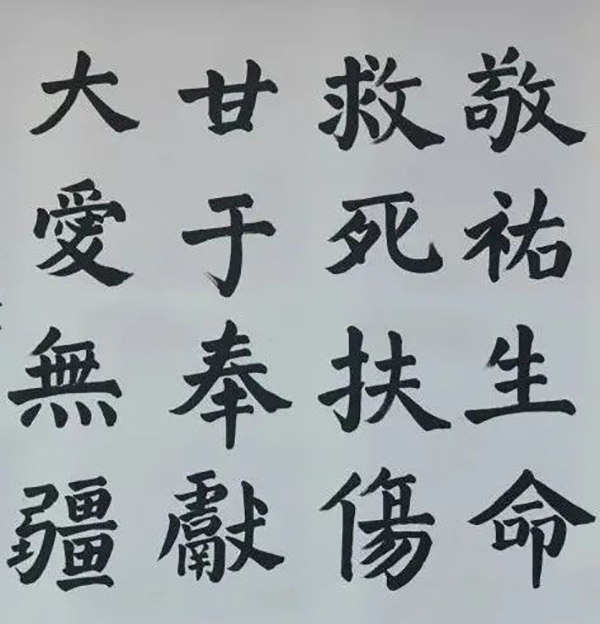 敬祐生命
救死扶傷
甘于奉獻
大愛無疆